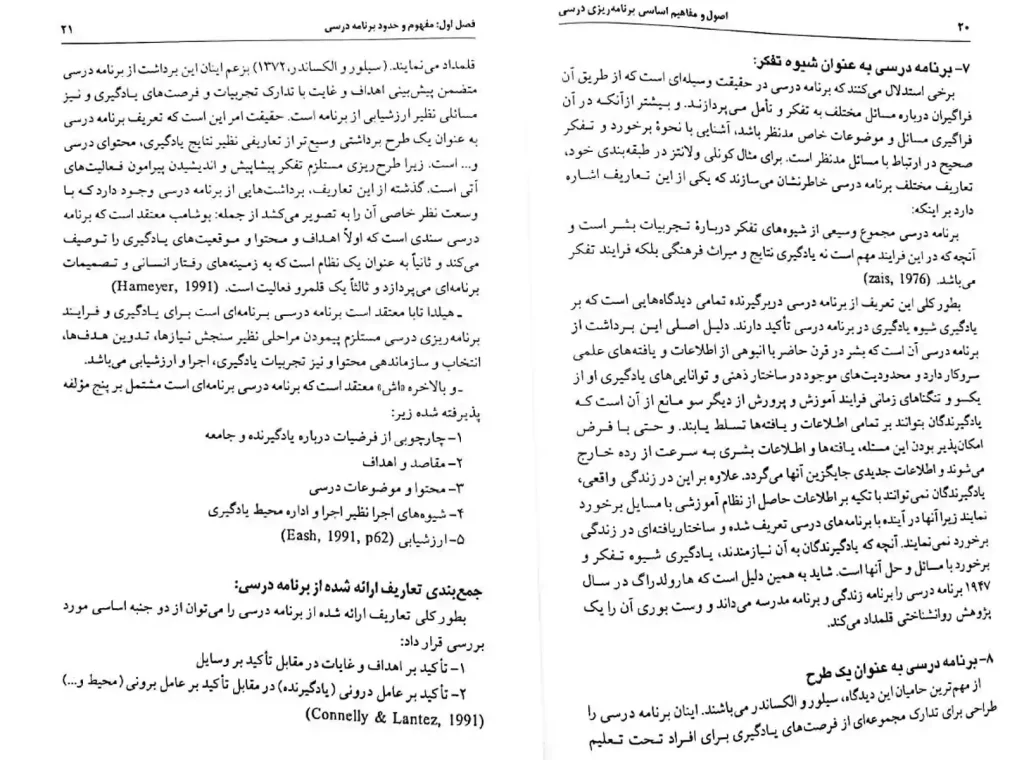 ۲۰
اصول و مفاهیم اساسی برنامه‌ریزی درسی
۷- برنامه درسی به عنوان شیوه تفکر:
برخی استدلال می‌کنند که برنامه درسی در حقیقت وسیله‌ای است که از طریق آن
فراگیران درباره مسائل مختلف به تفکر و تأمل می‌پردازند. و بیشتر از آنکه در آن
فراگیری مسائل و موضوعات خاص مدنظر باشد، آشنایی با نحوهٔ برخورد و تفکر
صحیح در ارتباط با مسائل مدنظر است. برای مثال کونلی ولانتز در طبقه‌بندی خود،
تعاریف مختلف برنامه درسی خاطرنشان می‌سازند که یکی از این تعاریف اشاره
دارد بر اینکه:
برنامه درسی مجموع وسیعی از شیوه‌های تفکر دربارهٔ تجربیات بشر است و
آنچه که در این فرایند مهم است نه یادگیری نتایج و میراث فرهنگی بلکه فرایند تفکر
می‌باشد. (zais, 1976)
بطور کلی این تعریف از برنامه درسی دربرگیرنده تمامی دیدگاه‌هایی است که بر
یادگیری شیوه یادگیری در برنامه درسی تأکید دارند. دلیل اصلی این برداشت از
برنامه درسی آن است که بشر در قرن حاضر با انبوهی از اطلاعات و یافته‌های علمی
سروکار دارد و محدودیت‌های موجود در ساختار ذهنی و توانایی‌های یادگیری او از
یکسو و تنگناهای زمانی فرایند آموزش و پرورش از دیگر سو مانع از آن است که
یادگیرندگان بتوانند بر تمامی اطلاعات و یافته‌ها تسلط یابند. و حتی با فرض
امکان‌پذیر بودن این مسئله، یافته‌ها و اطلاعات بشری به سرعت از رده خارج
می‌شوند و اطلاعات جدیدی جایگزین آنها می‌گردد. علاوه بر این در زندگی واقعی،
یادگیرندگان نمی‌توانند با تکیه بر اطلاعات حاصل از نظام آموزشی با مسایل برخورد
نمایند زیرا آنها در آینده با برنامه‌های درسی تعریف شده و ساختاریافته‌ای در زندگی
برخورد نمی‌نمایند. آنچه که یادگیرندگان به آن نیازمندند، یادگیری شیوه تفکر و
برخورد با مسائل و حل آنها است. شاید به همین دلیل است که هارولدراگ در سال
۱۹۴۷ برنامه درسی را برنامه زندگی و برنامه مدرسه می‌داند و وست بوری آن را یک
پژوهش روانشناختی قلمداد می‌کند.
۸- برنامه درسی به عنوان یک طرح
از مهم‌ترین حامیان این دیدگاه، سیلور و الکساندر می‌باشند. اینان برنامه درسی را
طراحی برای تدارک مجموعه‌ای از فرصت‌های یادگیری برای افراد تحت تعلیم
فصل اول: مفهوم و حدود برنامه درسی
۲۱
قلمداد می‌نمایند. (سیلور و الکساندر، ۱۳۷۲) بزعم اینان این برداشت از برنامه درسی
متضمن پیش‌بینی اهداف و غایت با تدارک تجربیات و فرصت‌های یادگیری و نیز
مسائلی نظیر ارزشیابی از برنامه است. حقیقت امر این است که تعریف برنامه درسی
به عنوان یک طرح برداشتی وسیع‌تر از تعاریفی نظیر نتایج یادگیری، محتوای درسی
و... است. زیرا طرح‌ریزی مستلزم تفکر پیشاپیش و اندیشیدن پیرامون فعالیت‌های
آتی است. گذشته از این تعاریف، برداشت‌هایی از برنامه درسی وجود دارد که با
وسعت نظر خاصی آن را به تصویر می‌کشد از جمله: بوشامب معتقد است که برنامه
درسی سندی است که اولاً اهداف و محتوا و موقعیت‌های یادگیری را توصیف
می‌کند و ثانیاً به عنوان یک نظام است که به زمینه‌های رفتار انسانی و تصمیمات
برنامه‌ای می‌پردازد و ثالثاً یک قلمرو فعالیت است. (Hameyer, 1991)
ـ هیلدا تابا معتقد است برنامه درسی برنامه‌ای است برای یادگیری و فرایند
برنامه‌ریزی درسی مستلزم پیمودن مراحلی نظیر سنجش نیازها، تدوین هدف‌ها،
انتخاب و سازماندهی محتوا و نیز تجربیات یادگیری، اجرا و ارزشیابی می‌باشد.
ـ و بالاخره «اش» معتقد است که برنامه درسی برنامه‌ای است مشتمل بر پنج مؤلفه
پذیرفته شده زیر:
۱- چارچوبی از فرضیات درباره یادگیرنده و جامعه
۲- مقاصد و اهداف
۳- محتوا و موضوعات درسی
۴- شیوه‌های اجرا نظیر اجرا و اداره محیط یادگیری
۵- ارزشیابی (Eash, 1991, p62)
جمع‌بندی تعاریف ارائه شده از برنامه درسی:
بطور کلی تعاریف ارائه شده از برنامه درسی را می‌توان از دو جنبه اساسی مورد
بررسی قرار داد:
۱- تأکید بر اهداف و غایات در مقابل تأکید بر وسایل
۲- تأکید بر عامل درونی (یادگیرنده) در مقابل تأکید بر عامل برونی (محیط و...)
(Connelly & Lantez, 1991)